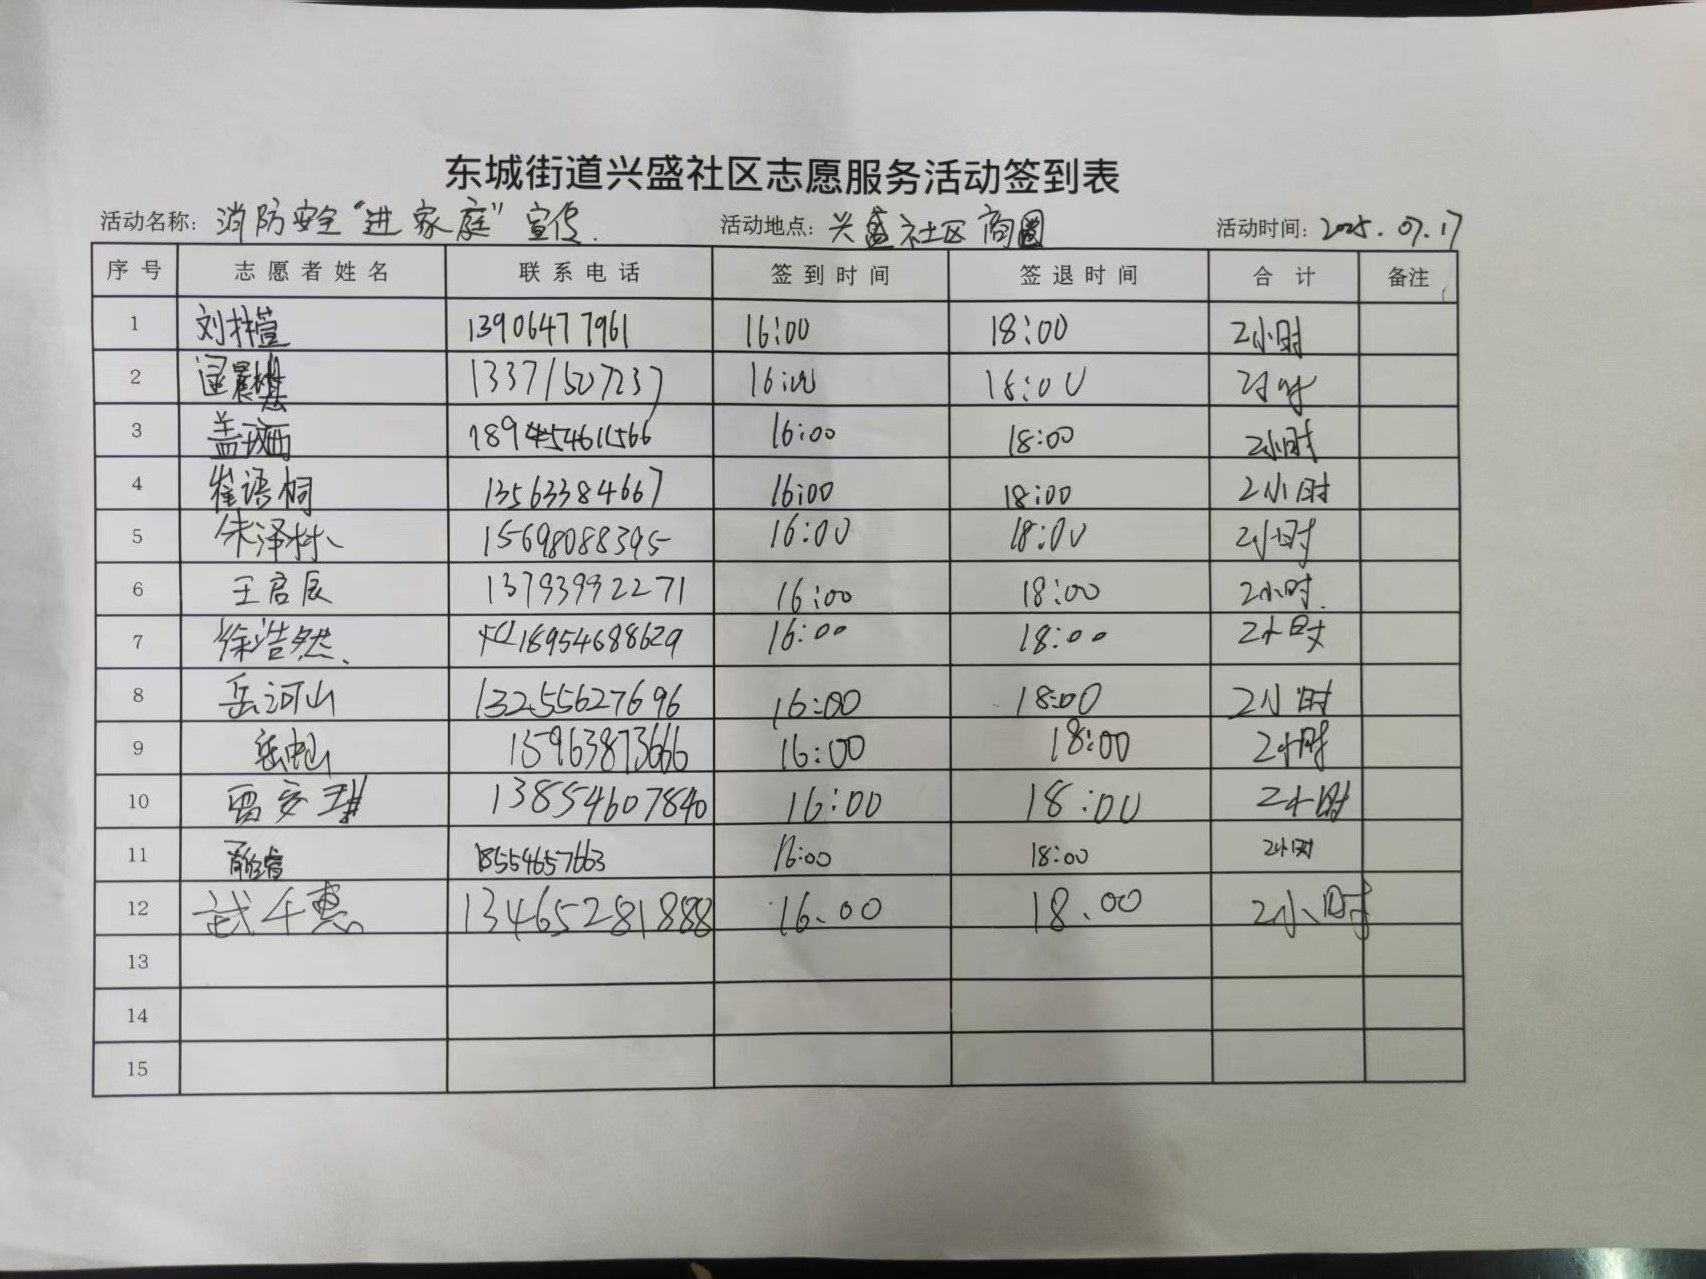 东城街道兴盛社区志愿服务活动签到表
活动名称：消防安全“进家庭”宣传. 活动地点：兴盛社区商圈 活动时间：2025.07.17
序号 志愿者姓名 联系电话 签到时间 签退时间 合计 备注
1 刘梓萱 13906477961 16:00 18:00 2小时
2 13371507237 16:00 18:00 2小时
3 16:00 18:00 2小时
4 崔语桐 13563384667 16:00 18:00 2小时
5 朱泽林 15698088395 16:00 18:00 2小时
6 王启辰 13793992271 16:00 18:00 2小时.
7 徐浩然 18954688629 16:00 18:00 2小时
8 岳河山 13255627696 16:00 18:00 2小时
9 15963873666 16:00 18:00 2小时
10 13854607840 16:00 18:00 2小时
11 18554657663 16:00 18:00 2小时
12 13465281888 16.00 18.00 2小时
13
14
15